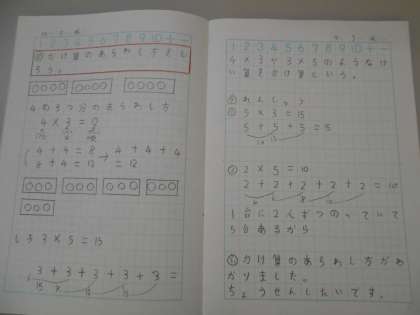 1 2 3 4 5 6 7 8 9 10 + -
かけ算のあらわし方をし
ろう。
4の3つ分のあらわし方
4 × 3 =
4 + 4 = 8 → 4 + 4 + 4
8 + 4 = 12 = 12
しき 3 × 5 = 15
3 + 3 + 3 + 3 + 3 =
1 2 3 4 5 6 7 8 9 10 + -
4 × 3 や 3 × 5 のようなけ
い算をかけ算という。
れんしゅう
① 5 × 3 = 15
5 + 5 + 5 = 5
② 2 × 5 = 10
2 + 2 + 2 + 2 + 2 = 10
1台に2人ずつのっていて
5台あるから
かけ算のあらわし方がわ
かりました。
ちょうせんしたいです。